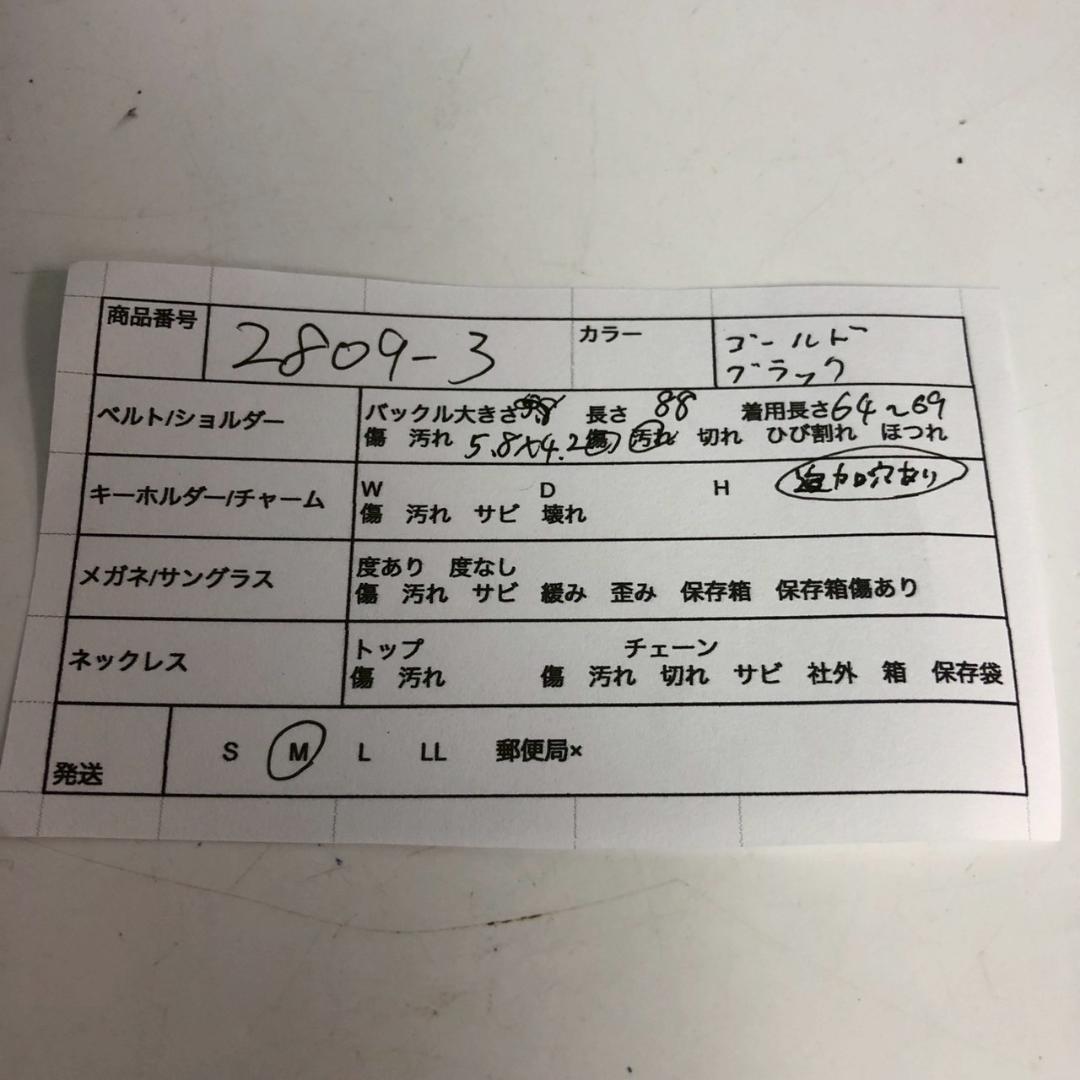 商品番号 2809-3 カラー ゴールド
ブラック
ベルト/ショルダー バックル大きさ 長さ 88 着用長さ 64~69
傷 汚れ 5.8×4.2 傷 汚れ 切れ ひび割れ ほつれ
キーホルダー/チャーム W D H 追加穴あり
傷 汚れ サビ 壊れ
メガネ/サングラス 度あり 度なし
傷 汚れ サビ 緩み 歪み 保存箱 保存箱傷あり
ネックレス トップ チェーン
傷 汚れ 傷 汚れ 切れ サビ 社外 箱 保存袋
発送 S M L LL 郵便局×